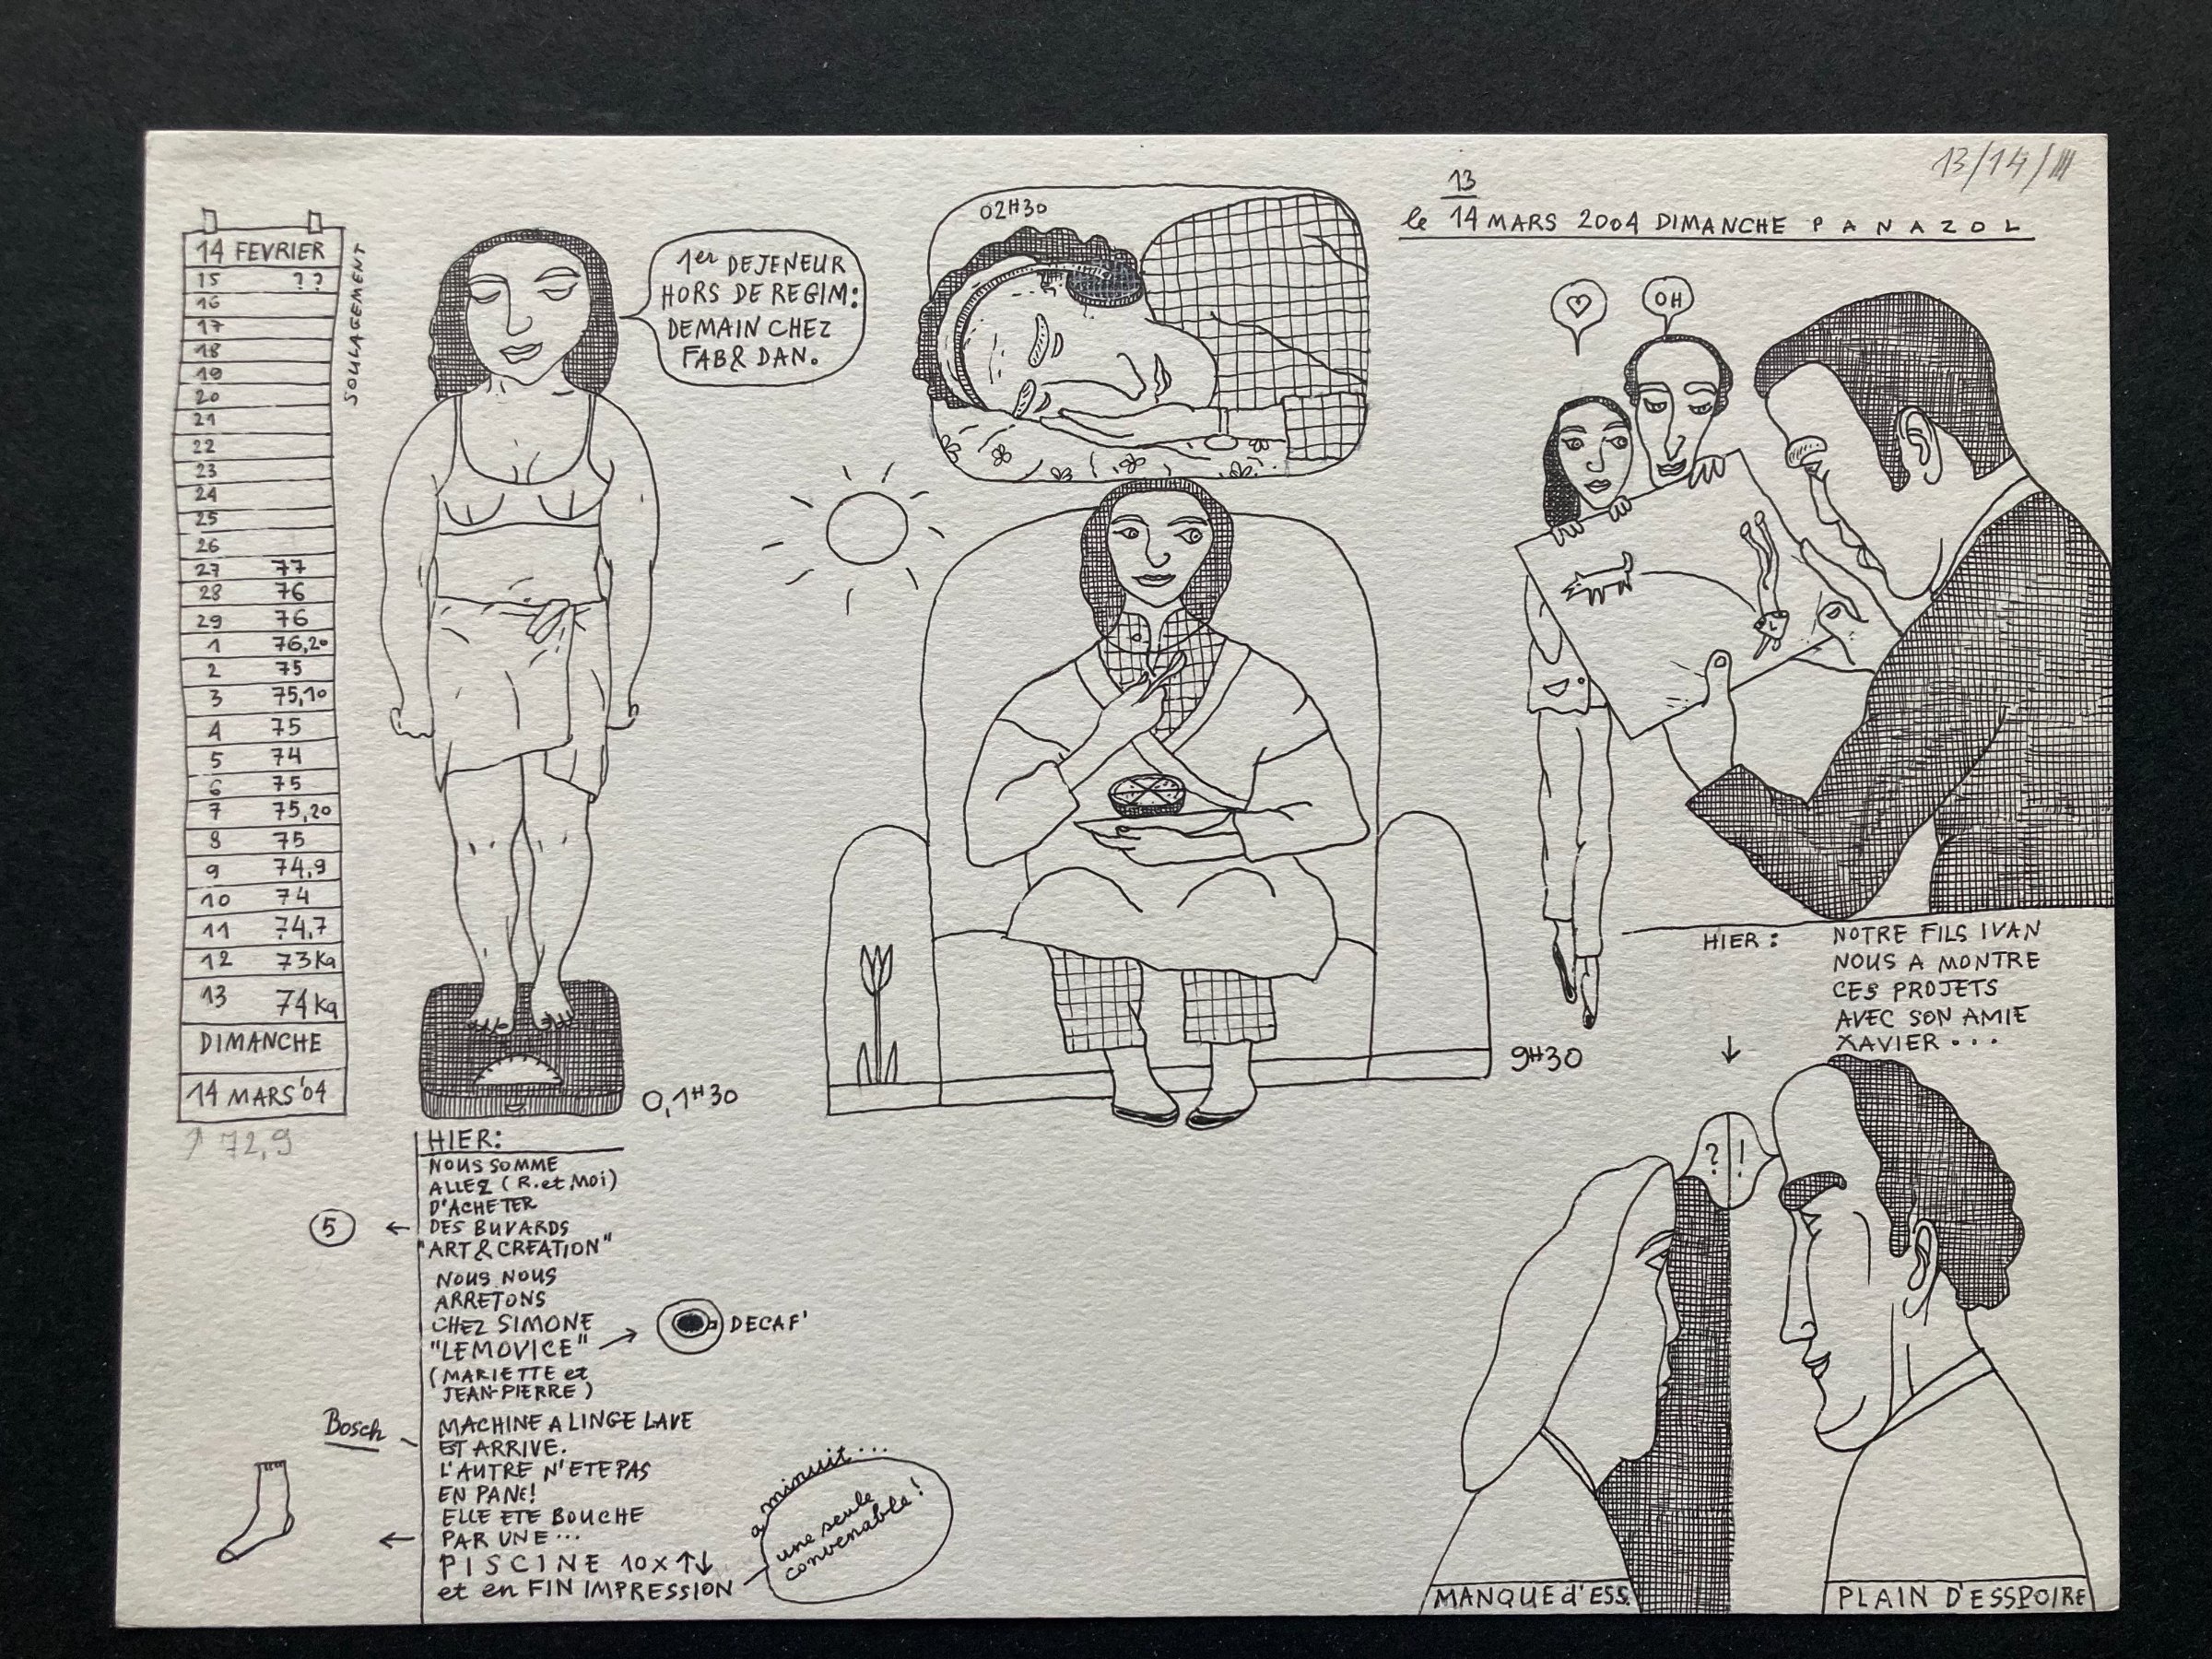 13/14/III
13
le 14 MARS 2004 DIMANCHE PANAZOL
14 FEVRIER
15 ??
16
17
18
19
20
21
22
23
24
25
26
27 77
28 76
29 76
1 76,20
2 75
3 75,10
4 75
5 74
6 75
7 75,20
8 75
9 74,9
10 74
11 74,7
12 73Kg
13 74Kg
DIMANCHE
14 MARS'04
↑ 72,9
SOULAGEMENT
1er DEJENEUR
HORS DE REGIM:
DEMAIN CHEZ
FAB& DAN.
0,1H30
02H30
9H30
♡
OH
HIER:
NOTRE FILS IVAN
NOUS A MONTRE
CES PROJETS
AVEC SON AMIE
XAVIER...
? !
MANQUE d'ESS.
PLAIN D'ESSPOIRE
HIER:
NOUS SOMME
ALLEZ (R. et Moi)
D'ACHETER
5 ← DES BUVARDS
"ART & CREATION"
NOUS NOUS
ARRETONS
CHEZ SIMONE
"LEMOVICE" → DECAF'
(MARIETTE et
JEAN-PIERRE)
Bosch
MACHINE A LINGE LAVE
EST ARRIVE.
L'AUTRE N'ETE PAS
EN PANE!
ELLE ETE BOUCHE
← PAR UNE...
PISCINE 10x ↑↓
et en FIN IMPRESSION
a minuit...
une seule
convenable!